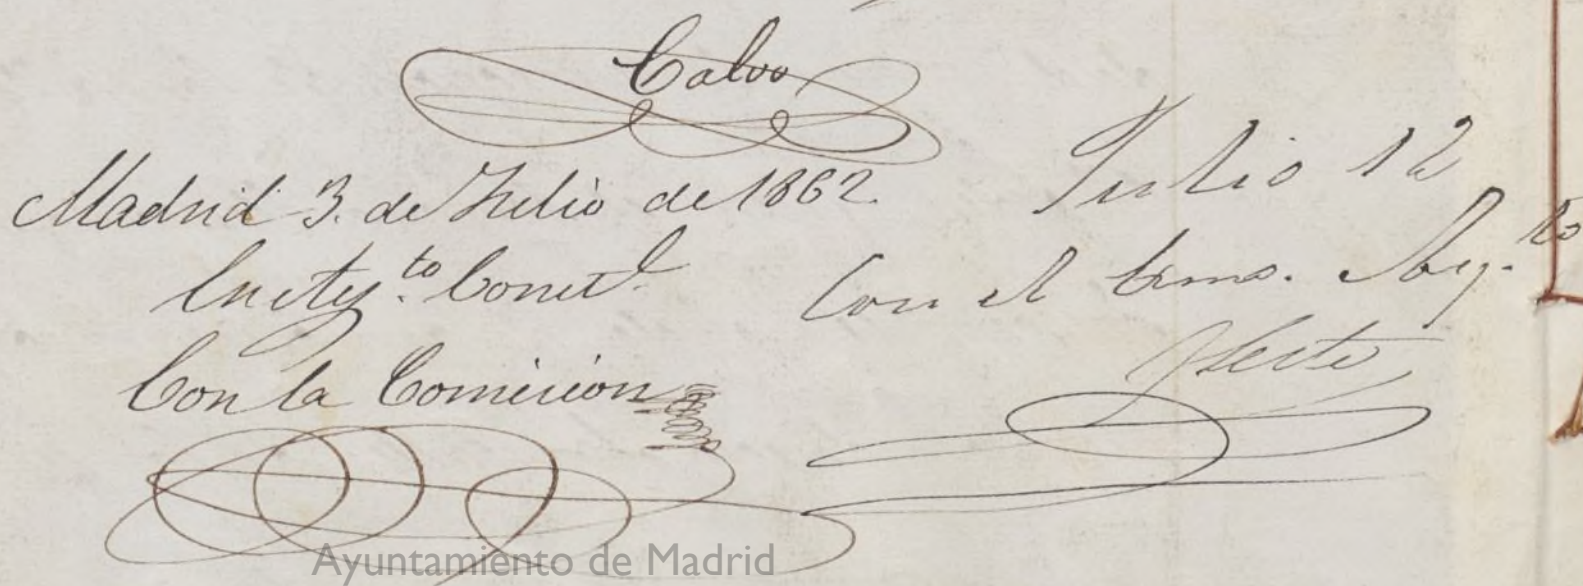 Calvo
Madrid 3. de Julio de 1862.
En Ay.to Const.l
Con la Comision
Julio 12
Con el Exmo. Ay.to
Sesto
Ayuntamiento de Madrid